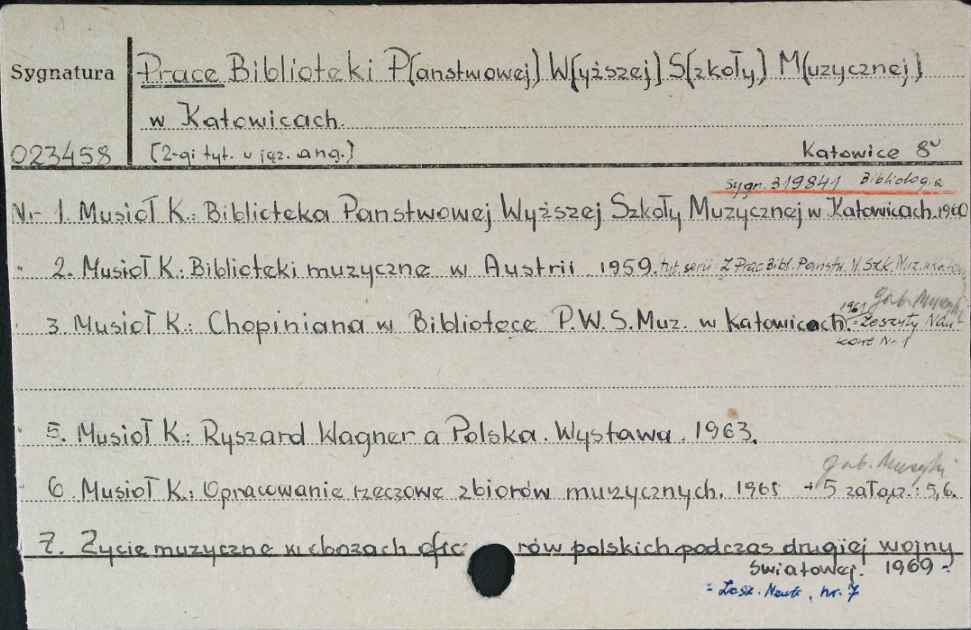 Sygnatura
Prace Biblioteki P[anstwowej] W[yższej] S[zkoły] M[uzycznej]
w Katowicach.
023458 [2-gi tyt. w jęz. ang.] Katowice 8°
Sygn. 319841 Bibliologia
Nr 1. Musioł K.: Biblioteka Panstwowej Wyższej Szkoły Muzycznej w Katowicach. 1960
" 2. Musioł K.: Biblioteki muzyczne w Austrii 1959. tyt. serii: Z Prac Bibl. Państw. W. Szk. Muz.
gab. Muzyki
" 3. Musioł K.: Chopiniana w Bibliotece P.W.S.Muz. w Katowicach. 1961 = Zeszyty Nau-
kowe Nr 1
" 5. Musioł K.: Ryszard Wagner a Polska. Wystawa. 1963.
gab. Muzyki
" 6. Musioł K.: Opracowanie rzeczowe zbiorów muzycznych. 1965 + 5 załącz.: 5,6.
" 7. Życie muzyczne w obozach ofic rów polskich podczas drugiej wojny
światowej. 1969 -
= Zesz. Nauk., nr. 7